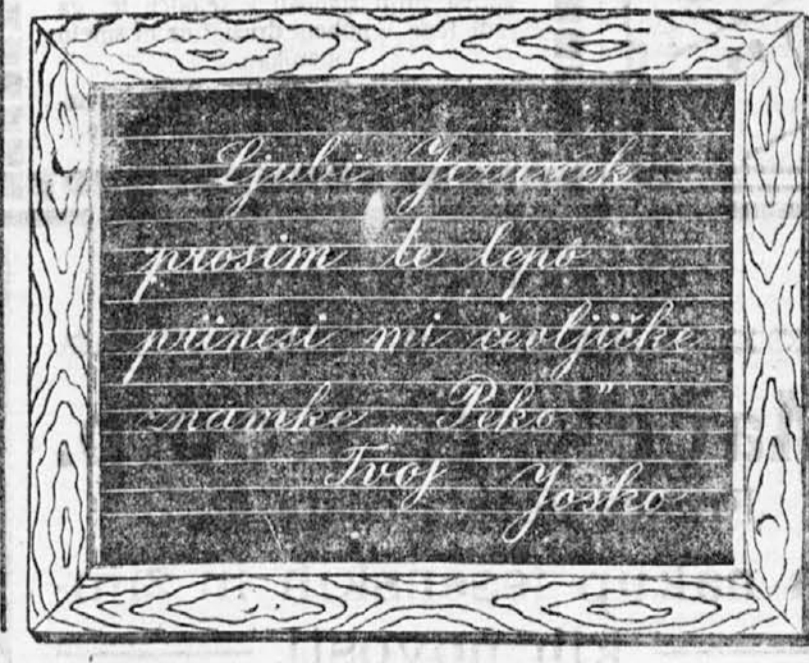 Ljubi Jezušček
prosim te lepo
prinesi mi čevljičke
znamke „Peko”
Tvoj Joško